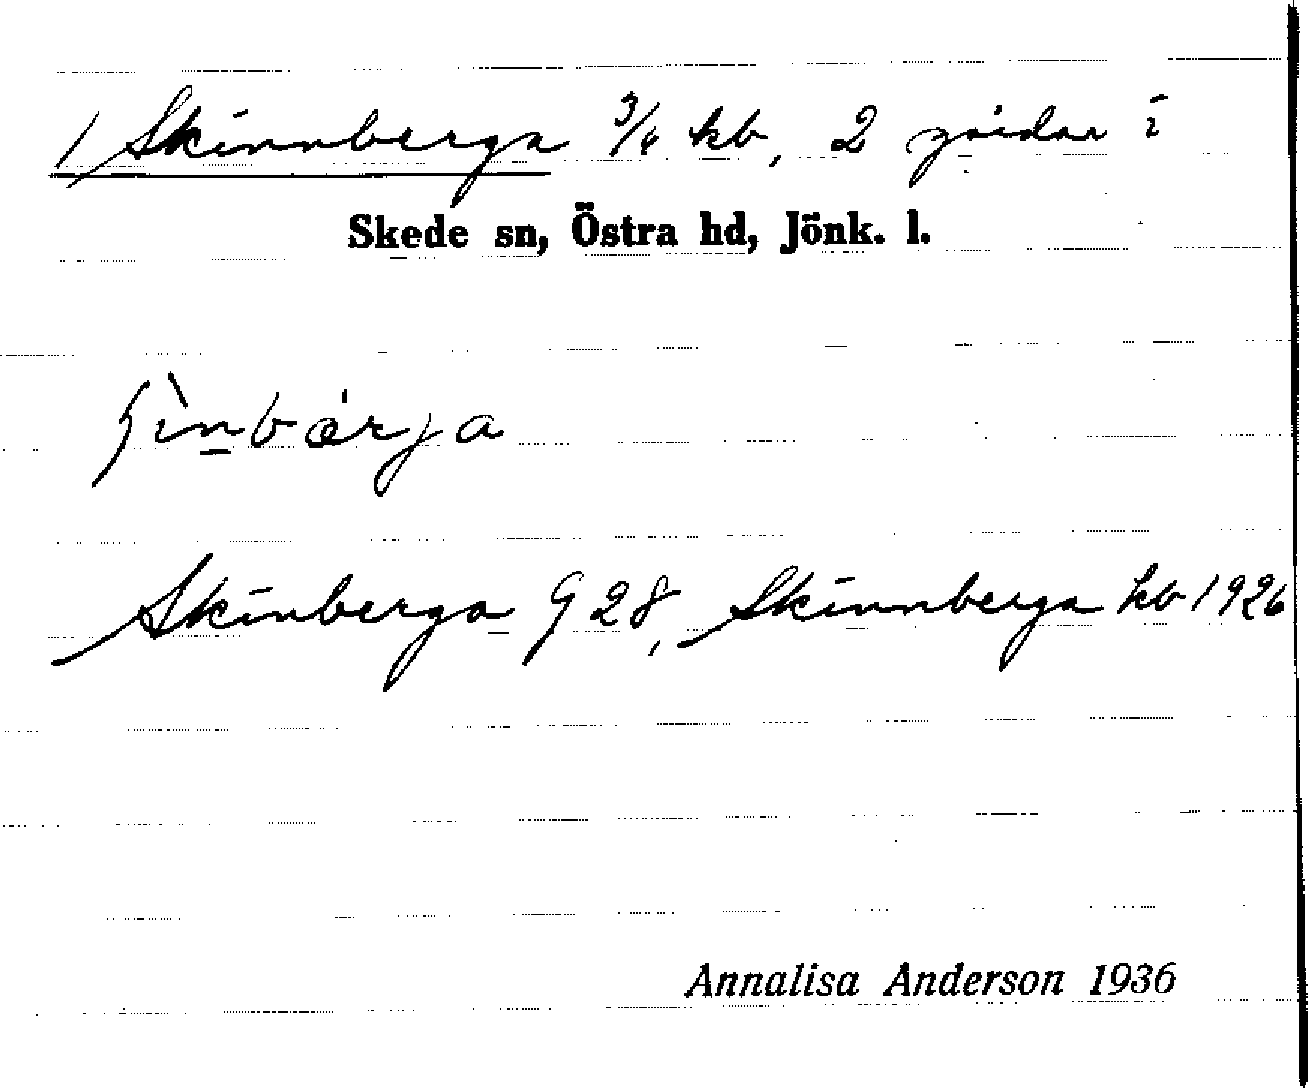 1 Skinnberga 3/4 kb, 2 gårdar i
Skede sn, Östra hd, Jönk. l.
Skinberga G 28, Skinnberga kb 1926
Annalisa Anderson 1936